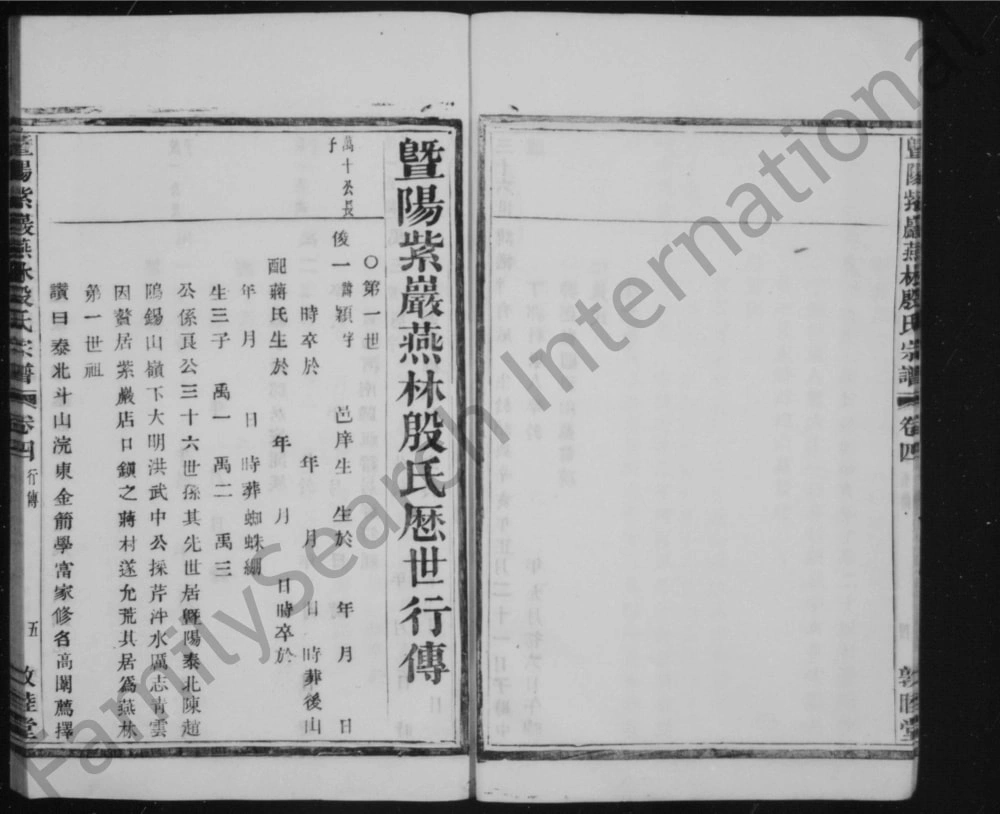 暨陽紫巖燕林殷氏宗譜 卷四
敦睦堂
暨陽紫巖燕林殷氏歷世行傳
萬十公長
子
○第一世
俊一諱穎字 邑庠生 生於 年 月 日
時卒於 年 月 日 時葬後山
配蔣氏生於 年 月 日時卒於
年 月 日 時葬蜘蛛綳
生三子 禹一 禹二 禹三
公係良公三十六世孫其先世居暨陽泰北陳趙
隖錫山嶺下大明洪武中公採芹泮水厲志青雲
因贅居紫巖店口鎮之蔣村遂允荒其居爲燕林
第一世祖
讚曰泰北斗山浣東金箭學富家修名高闈薦擇
暨陽紫巖燕林殷氏宗譜 卷四 行傳 五 敦睦堂
FamilySearch International